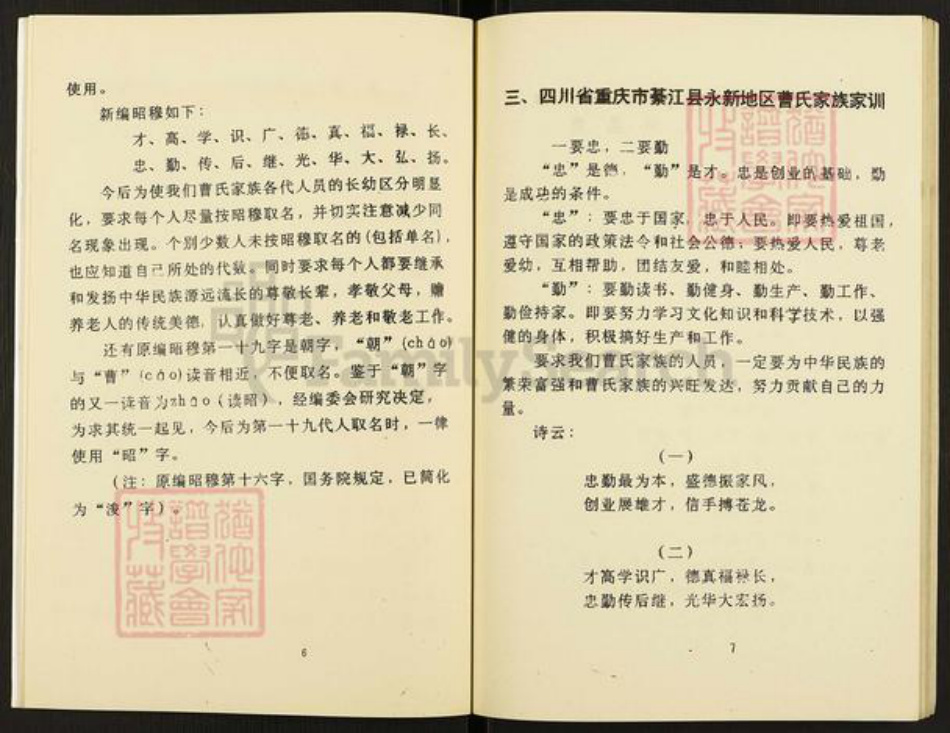 使用。
新编昭穆如下：
才、高、学、识、广、德、真、福、禄、长、
忠、勤、传、后、继、光、华、大、弘、扬。
今后为使我们曹氏家族各代人员的长幼区分明显
化，要求每个人尽量按昭穆取名，并切实注意减少同
名现象出现。个别少数人未按昭穆取名的(包括单名)，
也应知道自己所处的代数。同时要求每个人都要继承
和发扬中华民族源远流长的尊敬长辈，孝敬父母，赡
养老人的传统美德，认真做好尊老、养老和敬老工作。
还有原编昭穆第一十九字是朝字，“朝”(cháo)
与“曹”(cáo)读音相近，不便取名。鉴于“朝”字
的又一读音为zhāo（读昭），经编委会研究决定，
为求其统一起见，今后为第一十九代人取名时，一律
使用“昭”字。
(注：原编昭穆第十六字，国务院规定，已简化
为“浚”字)。
6
三、四川省重庆市綦江县永新地区曹氏家族家训
一要忠，二要勤
“忠”是德，“勤”是才。忠是创业的基础，勤
是成功的条件。
“忠”：要忠于国家，忠于人民。即要热爱祖国，
遵守国家的政策法令和社会公德；要热爱人民，尊老
爱幼，互相帮助，团结友爱，和睦相处。
“勤”：要勤读书、勤健身、勤生产、勤工作、
勤俭持家。即要努力学习文化知识和科学技术，以强
健的身体，积极搞好生产和工作。
要求我们曹氏家族的人员，一定要为中华民族的
繁荣富强和曹氏家族的兴旺发达，努力贡献自己的力
量。
诗云：
(一)
忠勤最为本，盛德振家风，
创业展雄才，信手搏苍龙。
(二)
才高学识广，德真福禄长，
忠勤传后继，光华大宏扬。
7
FamilySearch